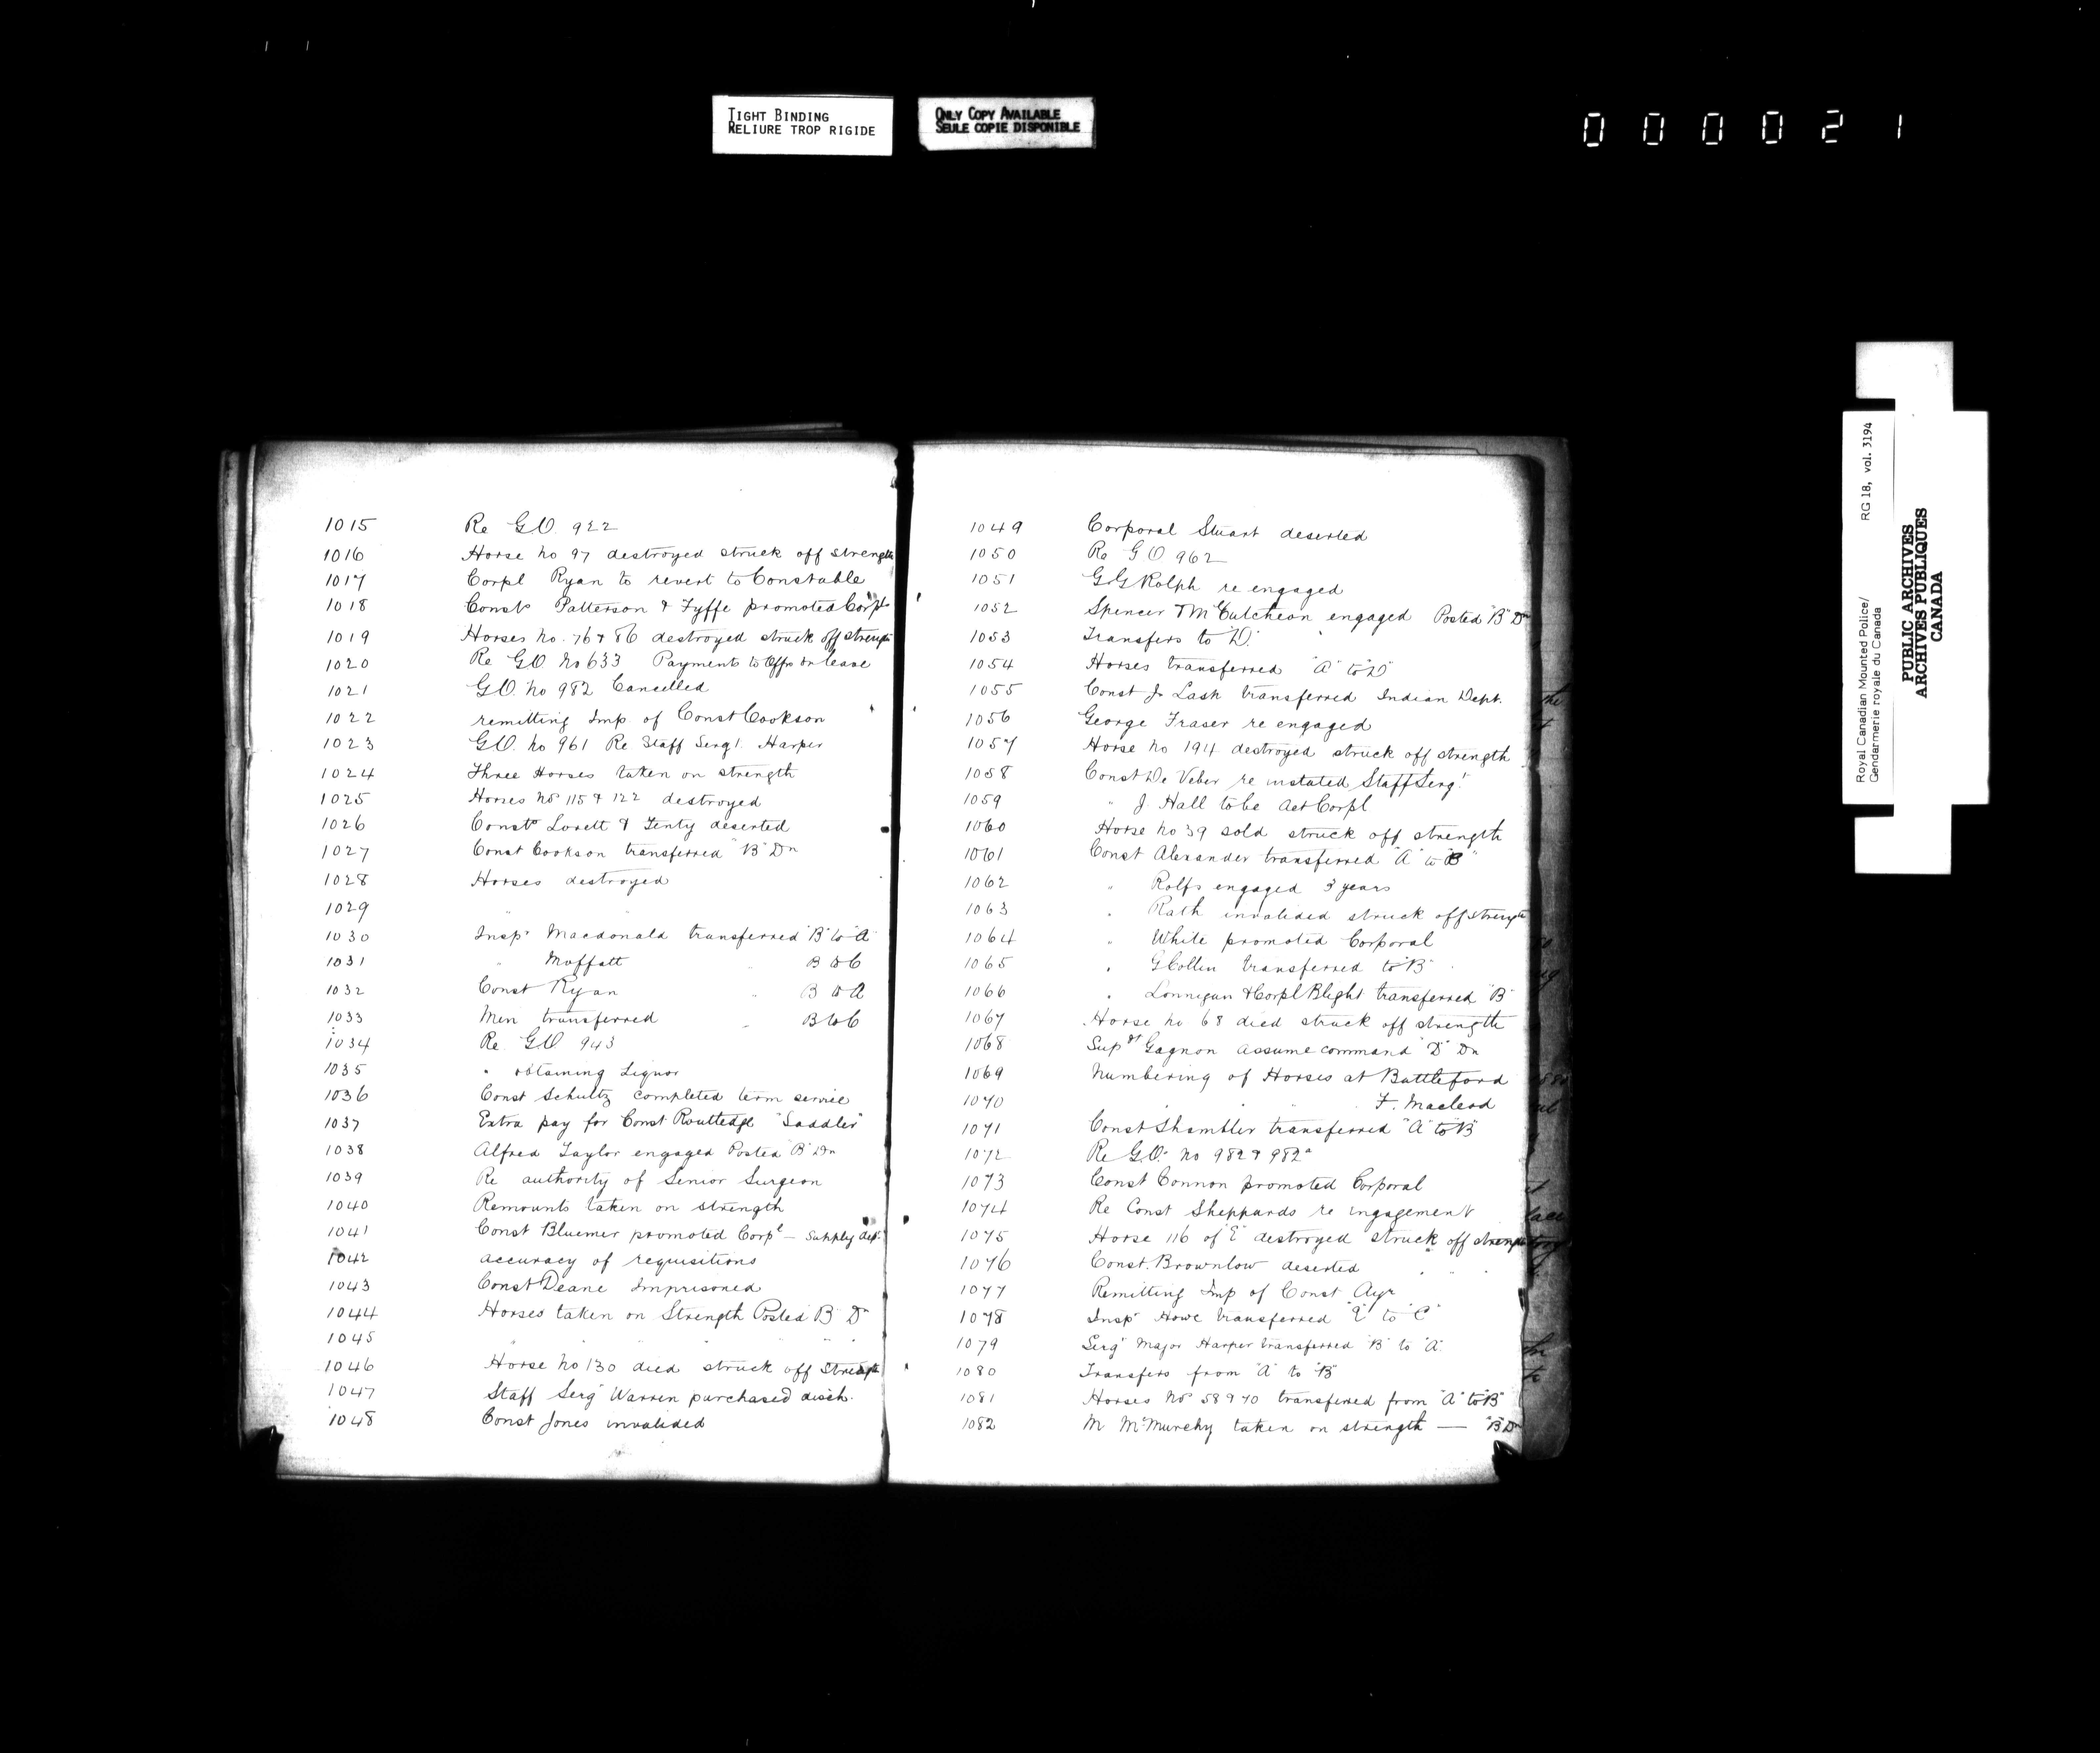 TIGHT BINDING
RELIURE TROP RIGIDE
ONLY COPY AVAILABLE
SEULE COPIE DISPONIBLE
000021
1015 Re G.O. 922
1016 Horse No 97 destroyed struck off strength
1017 Corpl Ryan to revert to Constable
1018 Consts Patterson & Fyffe promoted Corpls
1019 Horses No. 76 & 86 destroyed struck off strength
1020 Re G.O. No 633 Payments to Offrs on leave
1021 G.O. No 982 Cancelled
1022 remitting Imp of Const Cookson
1023 G.O. No 961 Re Staff Sergt. Harper
1024 Three Horses taken on strength
1025 Horses Nos 115 & 122 destroyed
1026 Consts Lovett & Tenty deserted
1027 Const Cookson transferred "B" Dn
1028 Horses destroyed
1029 "
1030 Inspr Macdonald transferred "B" to "A"
1031 " Moffatt " B to C
1032 Const Ryan " B to A
1033 Men transferred " B to C
1034 Re. G.O. 943
1035 " obtaining Liquor
1036 Const Schultz completed term service
1037 Extra pay for Const Routledge "Saddler"
1038 Alfred Taylor engaged Posted "B" Dn
1039 Re authority of Senior Surgeon
1040 Remounts taken on strength
1041 Const Bluemer promoted Corpl — Supply dept.
1042 accuracy of requisitions
1043 Const Deane Imprisoned
1044 Horses taken on Strength Posted "B" Dn
1045 " " " "
1046 Horse No 130 died struck off Strength
1047 Staff Sergt Warren purchased disch.
1048 Const Jones invalided
1049 Corporal Stuart deserted
1050 Re G.O. 962
1051 G.G Rolph re engaged
1052 Spencer & McCutcheon engaged Posted "B" Dn
1053 Transfers to "D".
1054 Horses transferred "A" to "D"
1055 Const J. Lash transferred Indian Dept.
1056 George Fraser re engaged
1057 Horse No 194 destroyed struck off strength
1058 Const De Veber re instated Staff Sergt.
1059 " J. Hall to be Act Corpl
1060 Horse No 39 sold struck off strength
1061 Const Alexander transferred "A" to "B"
1062 " Rolfs engaged 3 years
1063 " Rath invalided struck off strength
1064 " White promoted Corporal
1065 " G Collin transferred to "B"
1066 " Lonnigan & Corpl Blight transferred "B"
1067 Horse No 68 died struck off strength
1068 Supdt Gagnon assume command "D" Dn
1069 Numbering of Horses at Battleford
1070 " " " F. Macleod
1071 Const Shambler transferred "A" to "B"
1072 Re G.O. No 982 & 982a
1073 Const Connon promoted Corporal
1074 Re Const Sheppards re ingagement
1075 Horse 116 of "E" destroyed struck off strength
1076 Const. Brownlow deserted
1077 Remitting Imp of Const Ayr
1078 Inspr Howe transferred "E" to "C"
1079 Sergt Major Harper transferred "B" to "A".
1080 Transfers from "A" to "B"
1081 Horses Nos 58 & 70 transferred from "A" to "B"
1082 M McMurchy taken on strength — "B" Dn
Royal Canadian Mounted Police/ RG 18, vol. 3194
Gendarmerie royale du Canada
PUBLIC ARCHIVES
ARCHIVES PUBLIQUES
CANADA